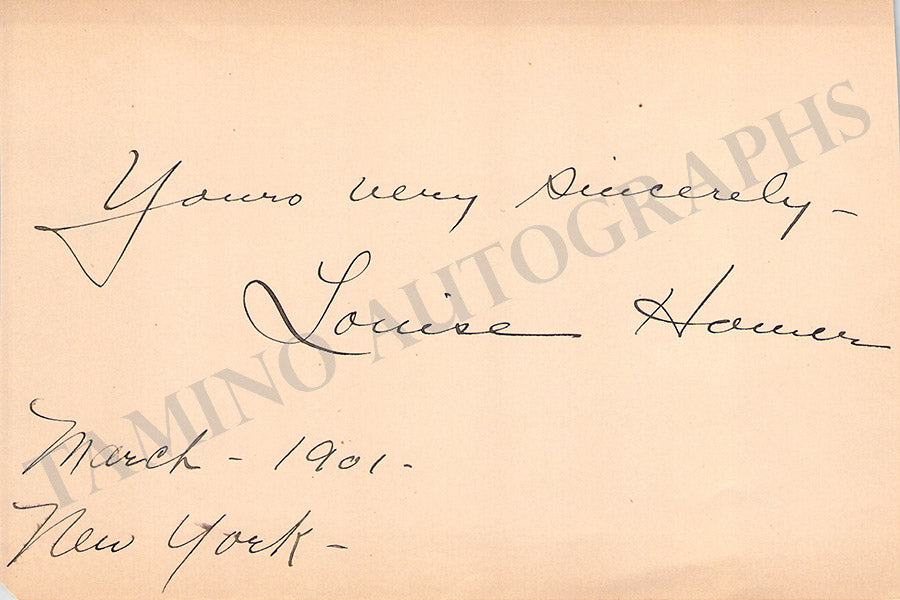 Yours very sincerely -
Louise Homer
March - 1901 -
New York -
TAMINO AUTOGRAPHS